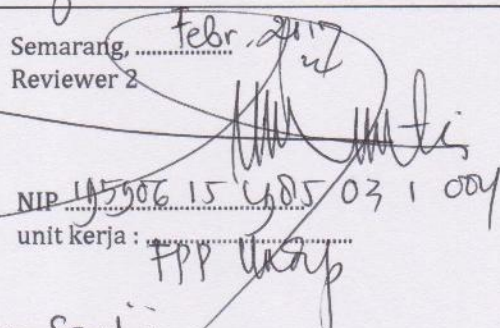 Semarang, Febr. 2017
Reviewer 2
NIP 195506 15 1985 03 1 004
unit kerja : FPP Undip